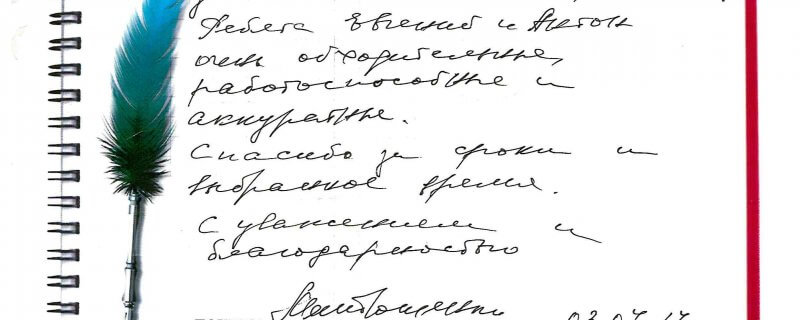 Ребята Евгений и Антон
очень обходительные,
работоспособные и
аккуратные.
Спасибо за сроки и
выбранное время.
С уважением и
благодарностью